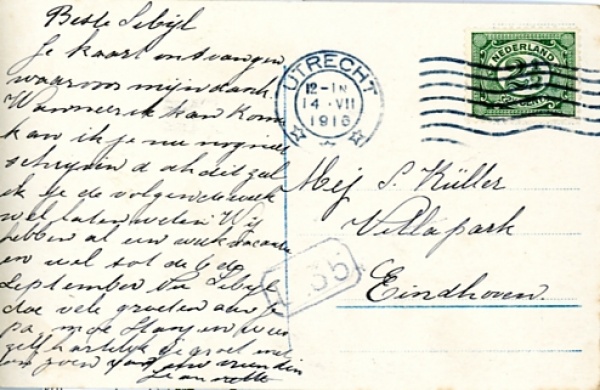 Beste Sebijl
Je kaart ontvangen
waarvoor mijn dank.
Wanneer ik kan kom
kan ik je nu nog niet
schrijven d och dit zal
ik je de volgende week
wel laten weten Wij
hebben al een week vacantie
en wel tot de 6 de
September Nu Sebijl
doe vele groeten aan je
pa, moe
zelf hartelijk gegroet met
een zoen van uw vriendin
Jeannette
UTRECHT
12-1N
14 · VII
1916
NEDERLAND
2½
CENT
Mej S. Küller
Villapark
Eindhoven.
35